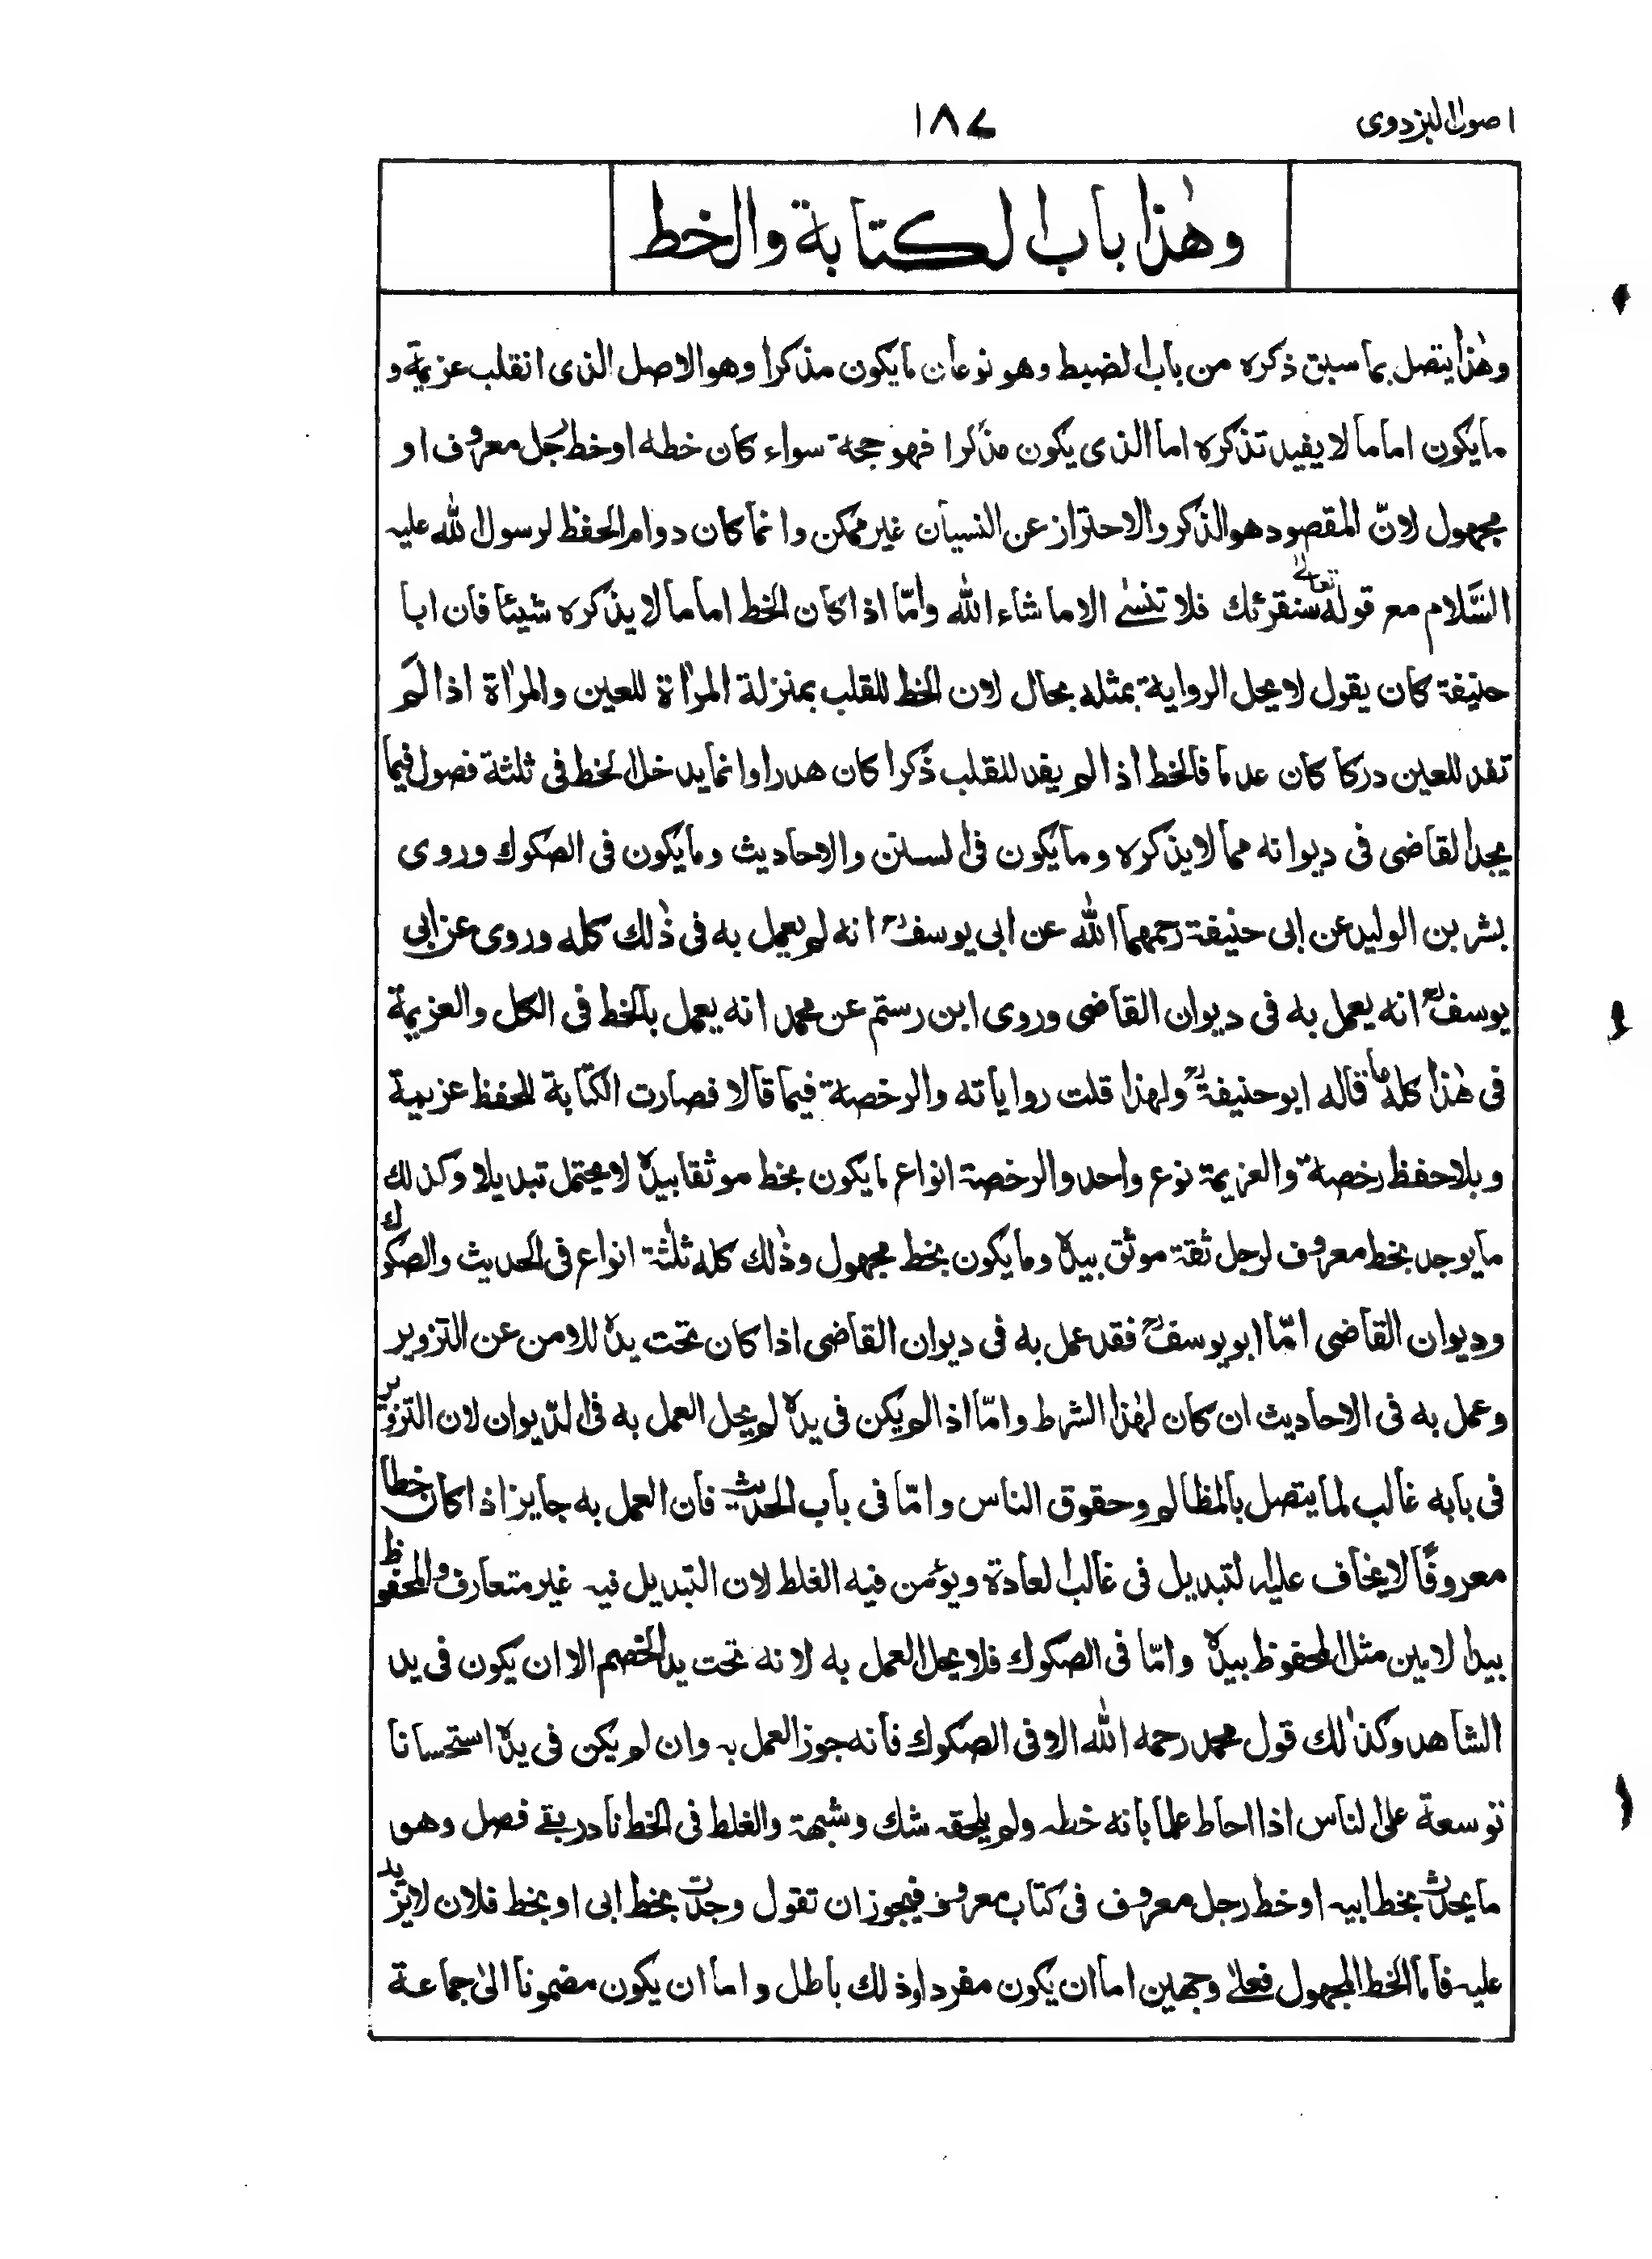 اصول البزدوی
۱۸۷
وهٰذا باب الكتابة والخط
وهٰذا يتصل بما سبق ذكره من باب الضبط وهو نوعان ما يكون مذكرا وهو الاصل الذى انقلب عزيمة و
ما يكون اماما لا يفيد تذكره اما الذى يكون مذكرا فهو حجة سواء كان خطه او خط رجل معروف او
مجهول لانّ المقصود هو الذكر والاحتراز عن النسيان غير ممكن وانما كان دوام الحفظ لرسول الله عليه
السَّلام مع قوله تعالىٰ سنقرئك فلا تنسىٰ الا ما شاء الله وامّا اذا كان الخط اماما لا يذكره شيئا فان ابا
حنيفة كان يقول لا يحل الرواية بمثله بحال لان الخط للقلب بمنزلة المرأة للعين والمرأة اذا لم
تفد للعين دركا كان عدما فالخط اذا لم يفد للقلب ذكرا كان هدرا وانما يدخل الخط فى ثلثة فصول فيما
يجد القاضى فى ديوانه مما لا يذكره وما يكون فى السنن والاحاديث وما يكون فى الصكوك وروى
بشر بن الوليد عن ابى حنيفة رحمهما الله عن ابى يوسف رح انه لم يعمل به فى ذٰلك كله وروى عن ابى
يوسف رح انه يعمل به فى ديوان القاضى وروى ابن رستم عن محمد انه يعمل بالخط فى الكل والعزيمة
فى هٰذا كله ما قاله ابو حنيفة رح ولهذا قلت رواياته والرخصة فيما قالا فصارت الكتابة للحفظ عزيمة
وبلا حفظ رخصة والعزيمة نوع واحد والرخصة انواع ما يكون بخط موثقا بيده لا يحتمل تبديلا وكذلك
ما يوجد بخط معروف لرجل ثقة موثق بيده وما يكون بخط مجهول وذٰلك كله ثلٰثة انواع فى الحديث والصكوك
وديوان القاضى امّا ابو يوسف رح فقد عمل به فى ديوان القاضى اذا كان تحت يده للامن عن التزوير
وعمل به فى الاحاديث ان كان لهٰذا الشرط وامّا اذا لم يكن فى يده لم يحل العمل به فى الديوان لان التزوير
فى بابه غالب لما يتصل بالمظالم وحقوق الناس وامّا فى باب الحديث فان العمل به جايز اذا كان خطا
معروفًا لا يخاف عليه التبديل فى غالب العادة ويؤمن فيه الغلط لان التبديل فيه غير متعارف والمحفوظ
بيد الامين مثل المحفوظ بيده وامّا فى الصكوك فلا يحل العمل به لانه تحت يد الخصم الا ان يكون فى يد
الشاهد وكذٰلك قول محمد رحمه الله الا فى الصكوك فانه جوز العمل به وان لم يكن فى يده استحسانا
توسعة على الناس اذا احاط علما بانه خطه ولم يلحقه شك وشبهة والغلط فى الخط نادر بقى فصل وهو
ما يحدث بخط ابيه او خط رجل معروف فى كتاب معروف فيجوز ان تقول وجدت بخط ابى او بخط فلان لا يزيد
عليه فاما الخط المجهول فعلىٰ وجهين اما ان يكون مفردا وذلك باطل واما ان يكون مضمونا الىٰ جماعة